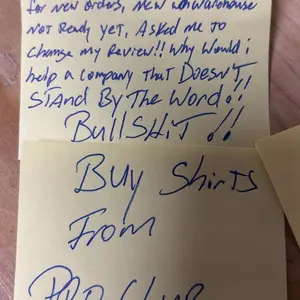 for new orders, New warehouse
Not Ready yet, Asked me to
change my Review!! Why Would i
help a company that Doesn't
STAnd By The Word!!
BullSHiT !!
Buy Shirts
From
PRO Club